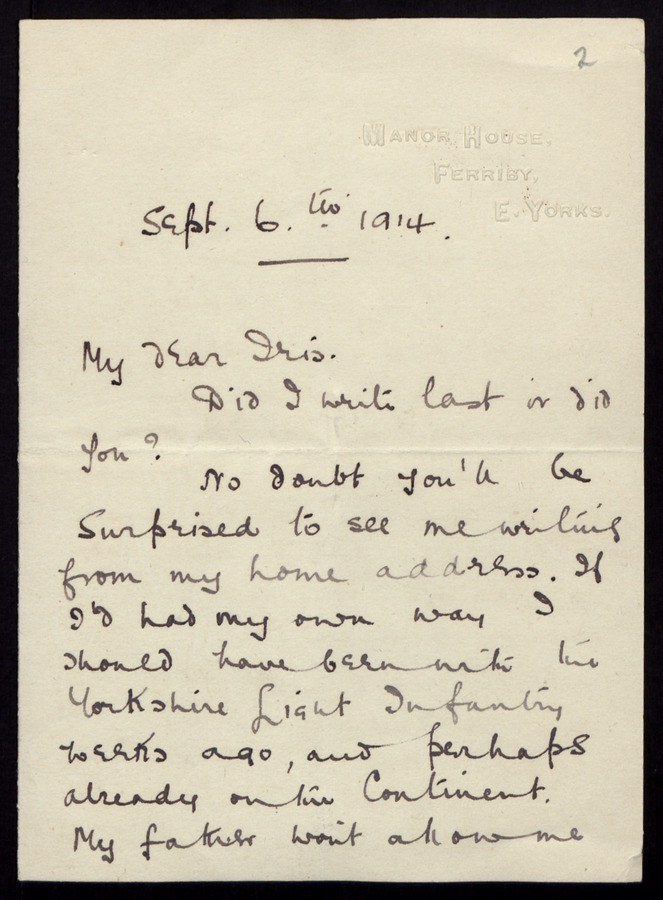 2
MANOR HOUSE,
FERRIBY,
E. YORKS.
Sept. 6.th 1914.
My dear Iris.
Did I write last or did
you?
No doubt you'll be
surprised to see me writing
from my home address. If
I'd had my own way I
should have been with the
Yorkshire Light Infantry
weeks ago, and perhaps
already on the Continent.
My father won't allow me